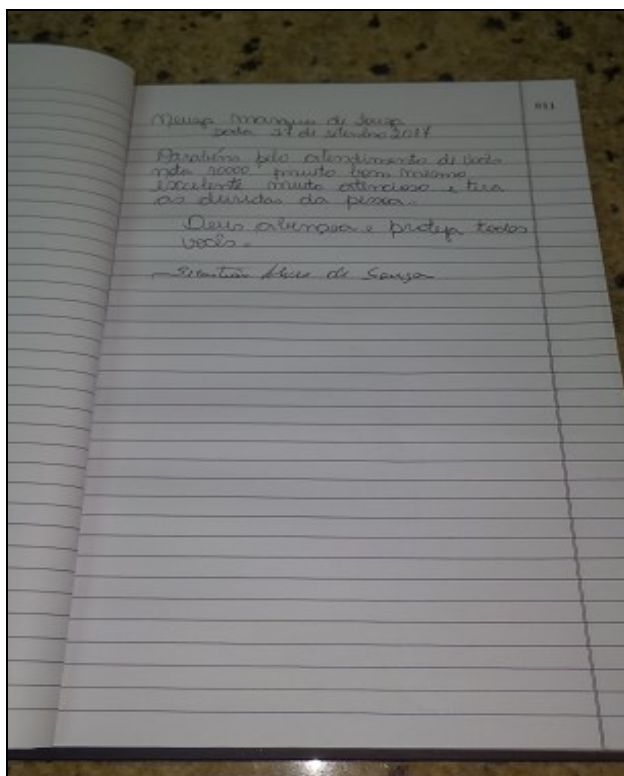 011
Neuza Marques de Souza
data 27 de setembro 2017
Parabéns pelo atendimento de vocês
nota 10000 muito bom mesmo
excelente muito atencioso e tira
as duvidas da pessoa.
Deus abençoa e proteja todos
vocês.
de Souza